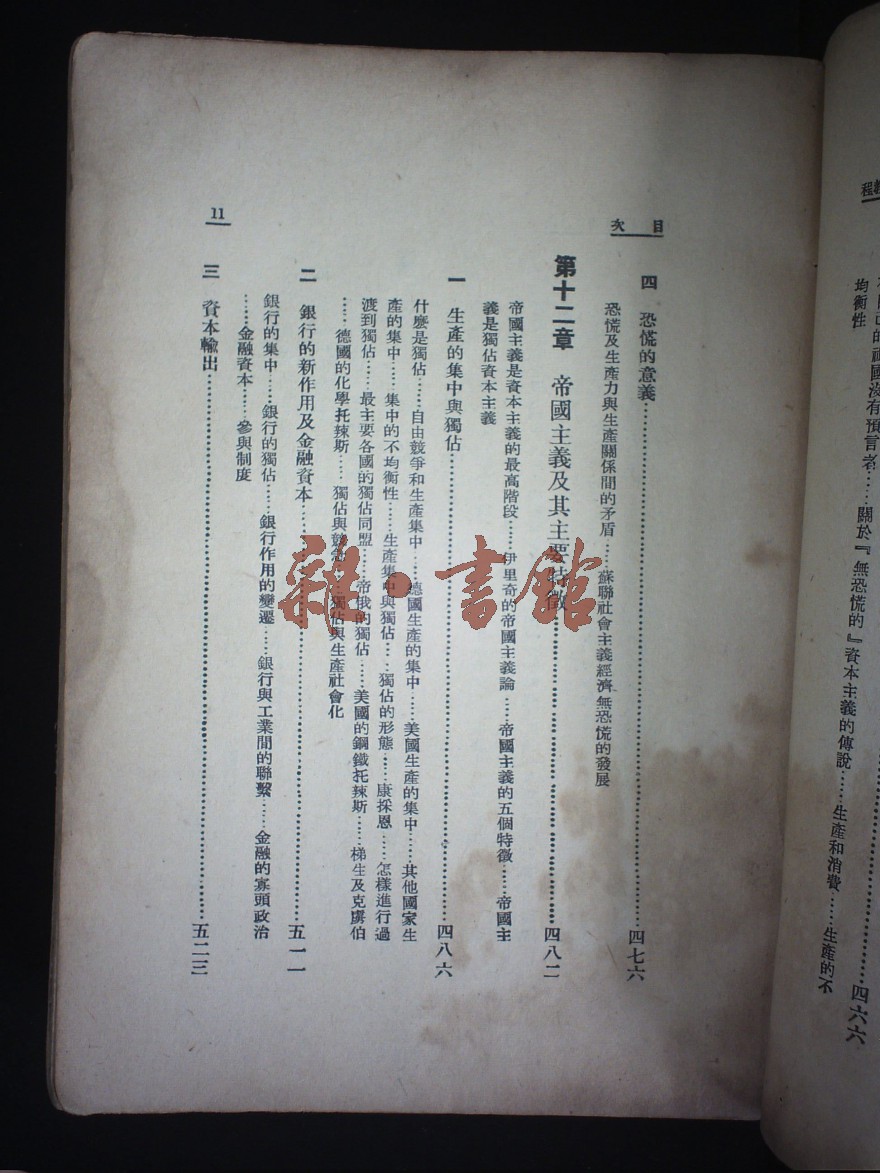 目次
四 恐慌的意義……四七六
恐慌及生產力與生產關係間的矛盾……蘇聯社會主義經濟無恐慌的發展
第十二章 帝國主義及其主要特徵……四八二
帝國主義是資本主義的最高階段……伊里奇的帝國主義論……帝國主義的五個特徵……帝國主
義是獨佔資本主義
一 生產的集中與獨佔……四八六
什麼是獨佔……自由競爭和生產集中……德國生產的集中……美國生產的集中……其他國家生
產的集中……集中的不均衡性……生產集中與獨佔……獨佔的形態……康採恩……怎樣進行過
渡到獨佔……最主要各國的獨佔同盟……帝俄的獨佔……美國的鋼鐵托辣斯……梯生及克虜伯
……德國的化學托辣斯……獨佔與競爭……獨佔與生產社會化
二 銀行的新作用及金融資本……五一一
銀行的集中……銀行的獨佔……銀行作用的變遷……銀行與工業間的聯繫……金融的寡頭政治
……金融資本……參與制度
三 資本輸出……五二三
11
程
祖國沒有預言者……關於『無恐慌的』資本主義的傳說……生產和消費……生產的不
均衡性
四六六
雜·書館